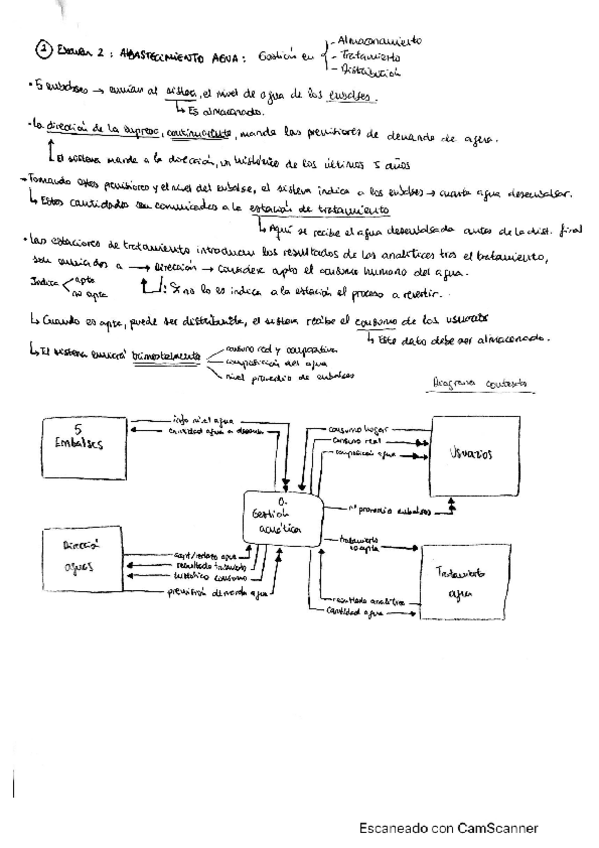 ② Examen 2: ABASTECIMIENTO AGUA: Gestión en
- Almacenamiento
- Tratamiento
- Distribución
• 5 embalses → envían al sistema, el nivel de agua de los embalses.
↳ Es almacenado.
• La dirección de la empresa, continuamente, manda las previsiones de demanda de agua.
El sistema manda a la dirección, un histórico de los últimos 5 años
→ Tomando estas previsiones y el nivel del embalse, el sistema indica a los embalses → cuanta agua desembalsar.
↳ Estas cantidades son comunicadas a la estación de tratamiento
↳ Aquí se recibe el agua desembalsada antes de la dist. final
• Las estaciones de tratamiento introducen los resultados de las analíticas tras el tratamiento,
son enviados a → Dirección → Considere apto el consumo humano del agua.
Indica
apto
no apto
↳: Si no lo es indica a la estación el proceso a revertir.
↳ Cuando es apta, puede ser distribuida, el sistema recibe el consumo de los usuarios
↳ Este dato debe ser almacenado.
↳ El sistema enviará trimestralmente
consumo real y comparativa
composición del agua
nivel promedio de embalses
Diagrama contexto
5
Embalses
info nivel agua
cantidad agua a desemb
consumo hogar
consumo real
composición agua
Usuarios
0.
Gestión
acuática
nº promedio embalses
Dirección
aguas
apt/ agua
resultado tratamiento
histórico consumo
previsión demanda agua
tratamiento
no apto
resultado analítica
cantidad agua
Tratamiento
agua
Escaneado con CamScanner